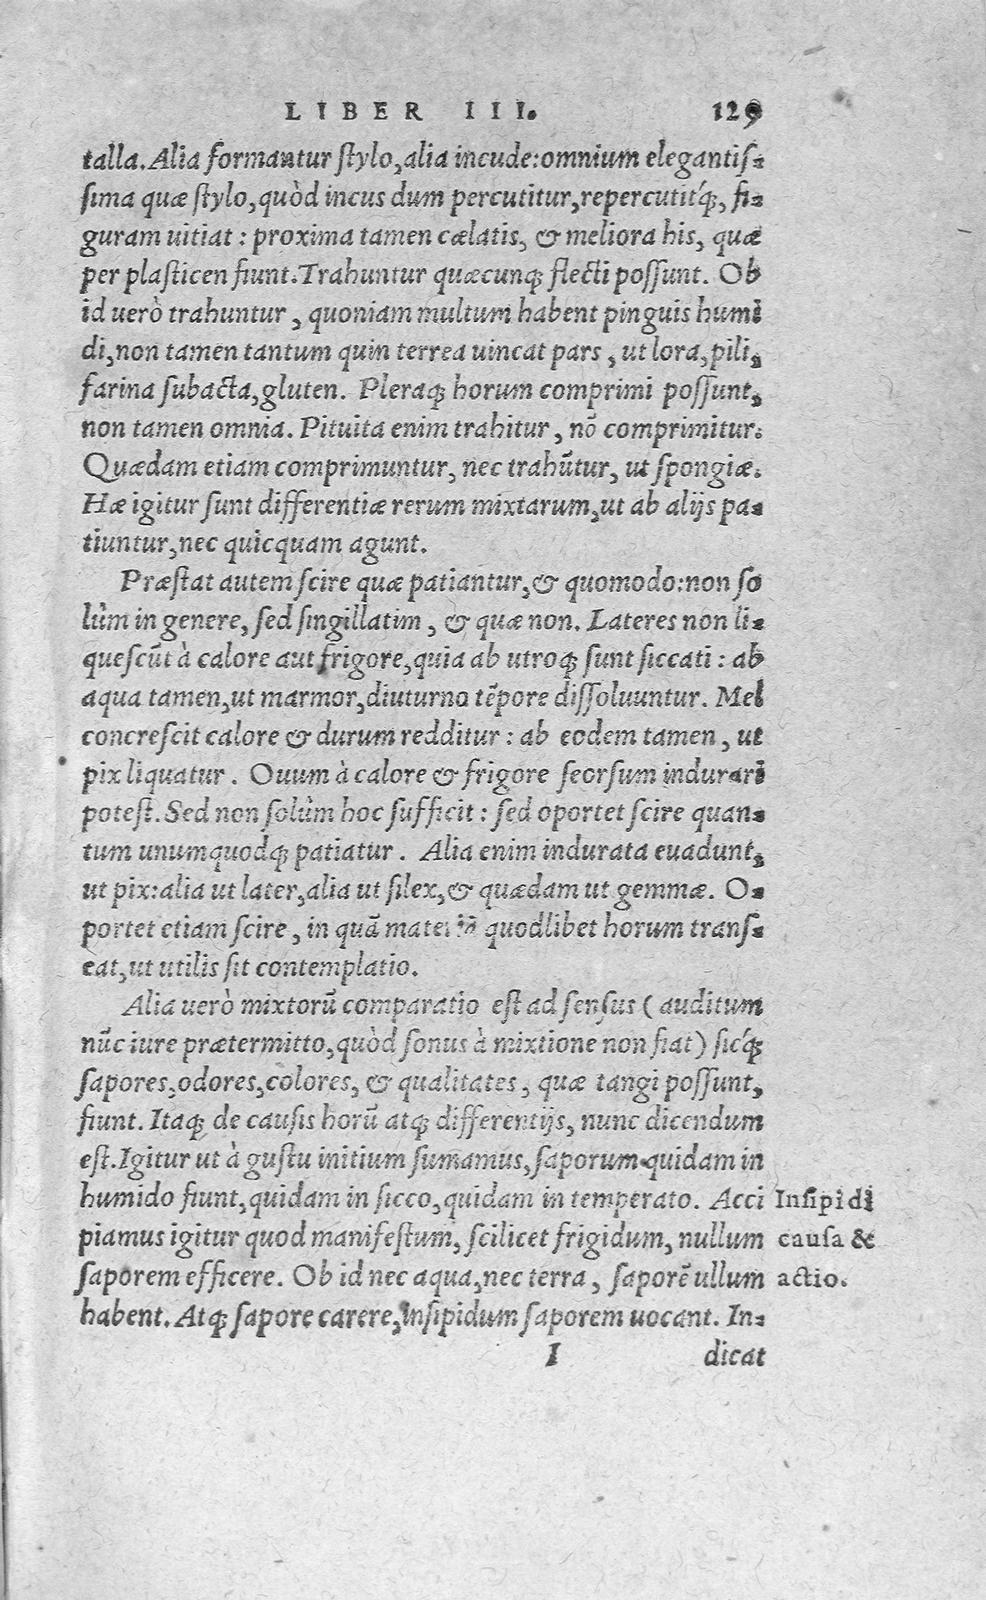 LIBER III. 129
talla. Alia formantur ſtylo, alia incude: omnium elegantiſ-
ſima quæ ſtylo, quòd incus dum percutitur, repercutitq́;, fi-
guram uitiat: proxima tamen cælatis, & meliora his, quæ
per plaſticen fiunt. Trahuntur quæcunq; flecti poſſunt. Ob
id uerò trahuntur, quoniam multum habent pinguis humi
di, non tamen tantum quin terrea uincat pars, ut lora, pili,
farina ſubacta, gluten. Pleraq; horum comprimi poſſunt,
non tamen omnia. Pituita enim trahitur, nõ comprimitur.
Quædam etiam comprimuntur, nec trahũtur, ut ſpongiæ.
Hæ igitur ſunt differentiæ rerum mixtarum, ut ab alijs pa-
tiuntur, nec quicquam agunt.
Præſtat autem ſcire quæ patiantur, & quomodo: non ſo
lùm in genere, ſed ſingillatim, & quæ non. Lateres non li-
queſcũt à calore aut frigore, quia ab utroq; ſunt ſiccati: ab
aqua tamen, ut marmor, diuturno tẽpore diſſoluuntur. Mel
concreſcit calore & durum redditur: ab eodem tamen, ut
pix liquatur. Ouum à calore & frigore ſeorſum indurari
poteſt. Sed non ſolùm hoc ſufficit: ſed oportet ſcire quan-
tum unumquodq; patiatur. Alia enim indurata euadunt,
ut pix: alia ut later, alia ut ſilex, & quædam ut gemmæ. O-
portet etiam ſcire, in quã materiã quodlibet horum tranſ-
eat, ut utilis ſit contemplatio.
Alia uerò mixtorũ comparatio eſt ad ſenſus (auditum
nũc iure prætermitto, quòd ſonus à mixtione non fiat) ſicq́;
ſapores, odores, colores, & qualitates, quæ tangi poſſunt,
fiunt. Itaq; de cauſis horũ atq; differentijs, nunc dicendum
eſt. Igitur ut à guſtu initium ſumamus, ſaporum quidam in
humido fiunt, quidam in ſicco, quidam in temperato. Acci
piamus igitur quod manifeſtum, ſcilicet frigidum, nullum
ſaporem efficere. Ob id nec aqua, nec terra, ſaporẽ ullum
habent. Atq; ſapore carere, inſipidum ſaporem uocant. In-
Inſipidi
cauſa &
actio.
I dicat